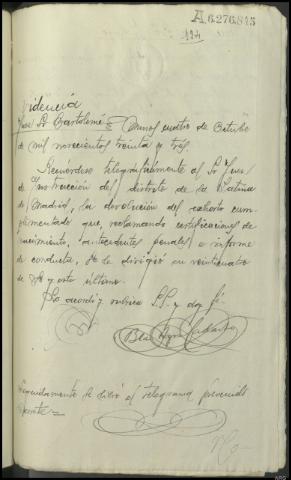 A.6.276.845
194
Providencia
Juez Sr Bartolomé = Bunos cuatro de Octubre
de mil novecientos treinta y tres.
Recuérdese telegráficamente al Sr Juez
de Instrucción del distrito de la Latina
de Madrid, la devolución del exhorto cum-
plimentado que, reclamando certificaciones de
nacimiento, antecedentes penales e informe
de conducta, se le dirigió en veinticuatro
de
Lo acordó y rubrica S.S. y doy fe.
Seguidamente se libró el telegrama prevenido